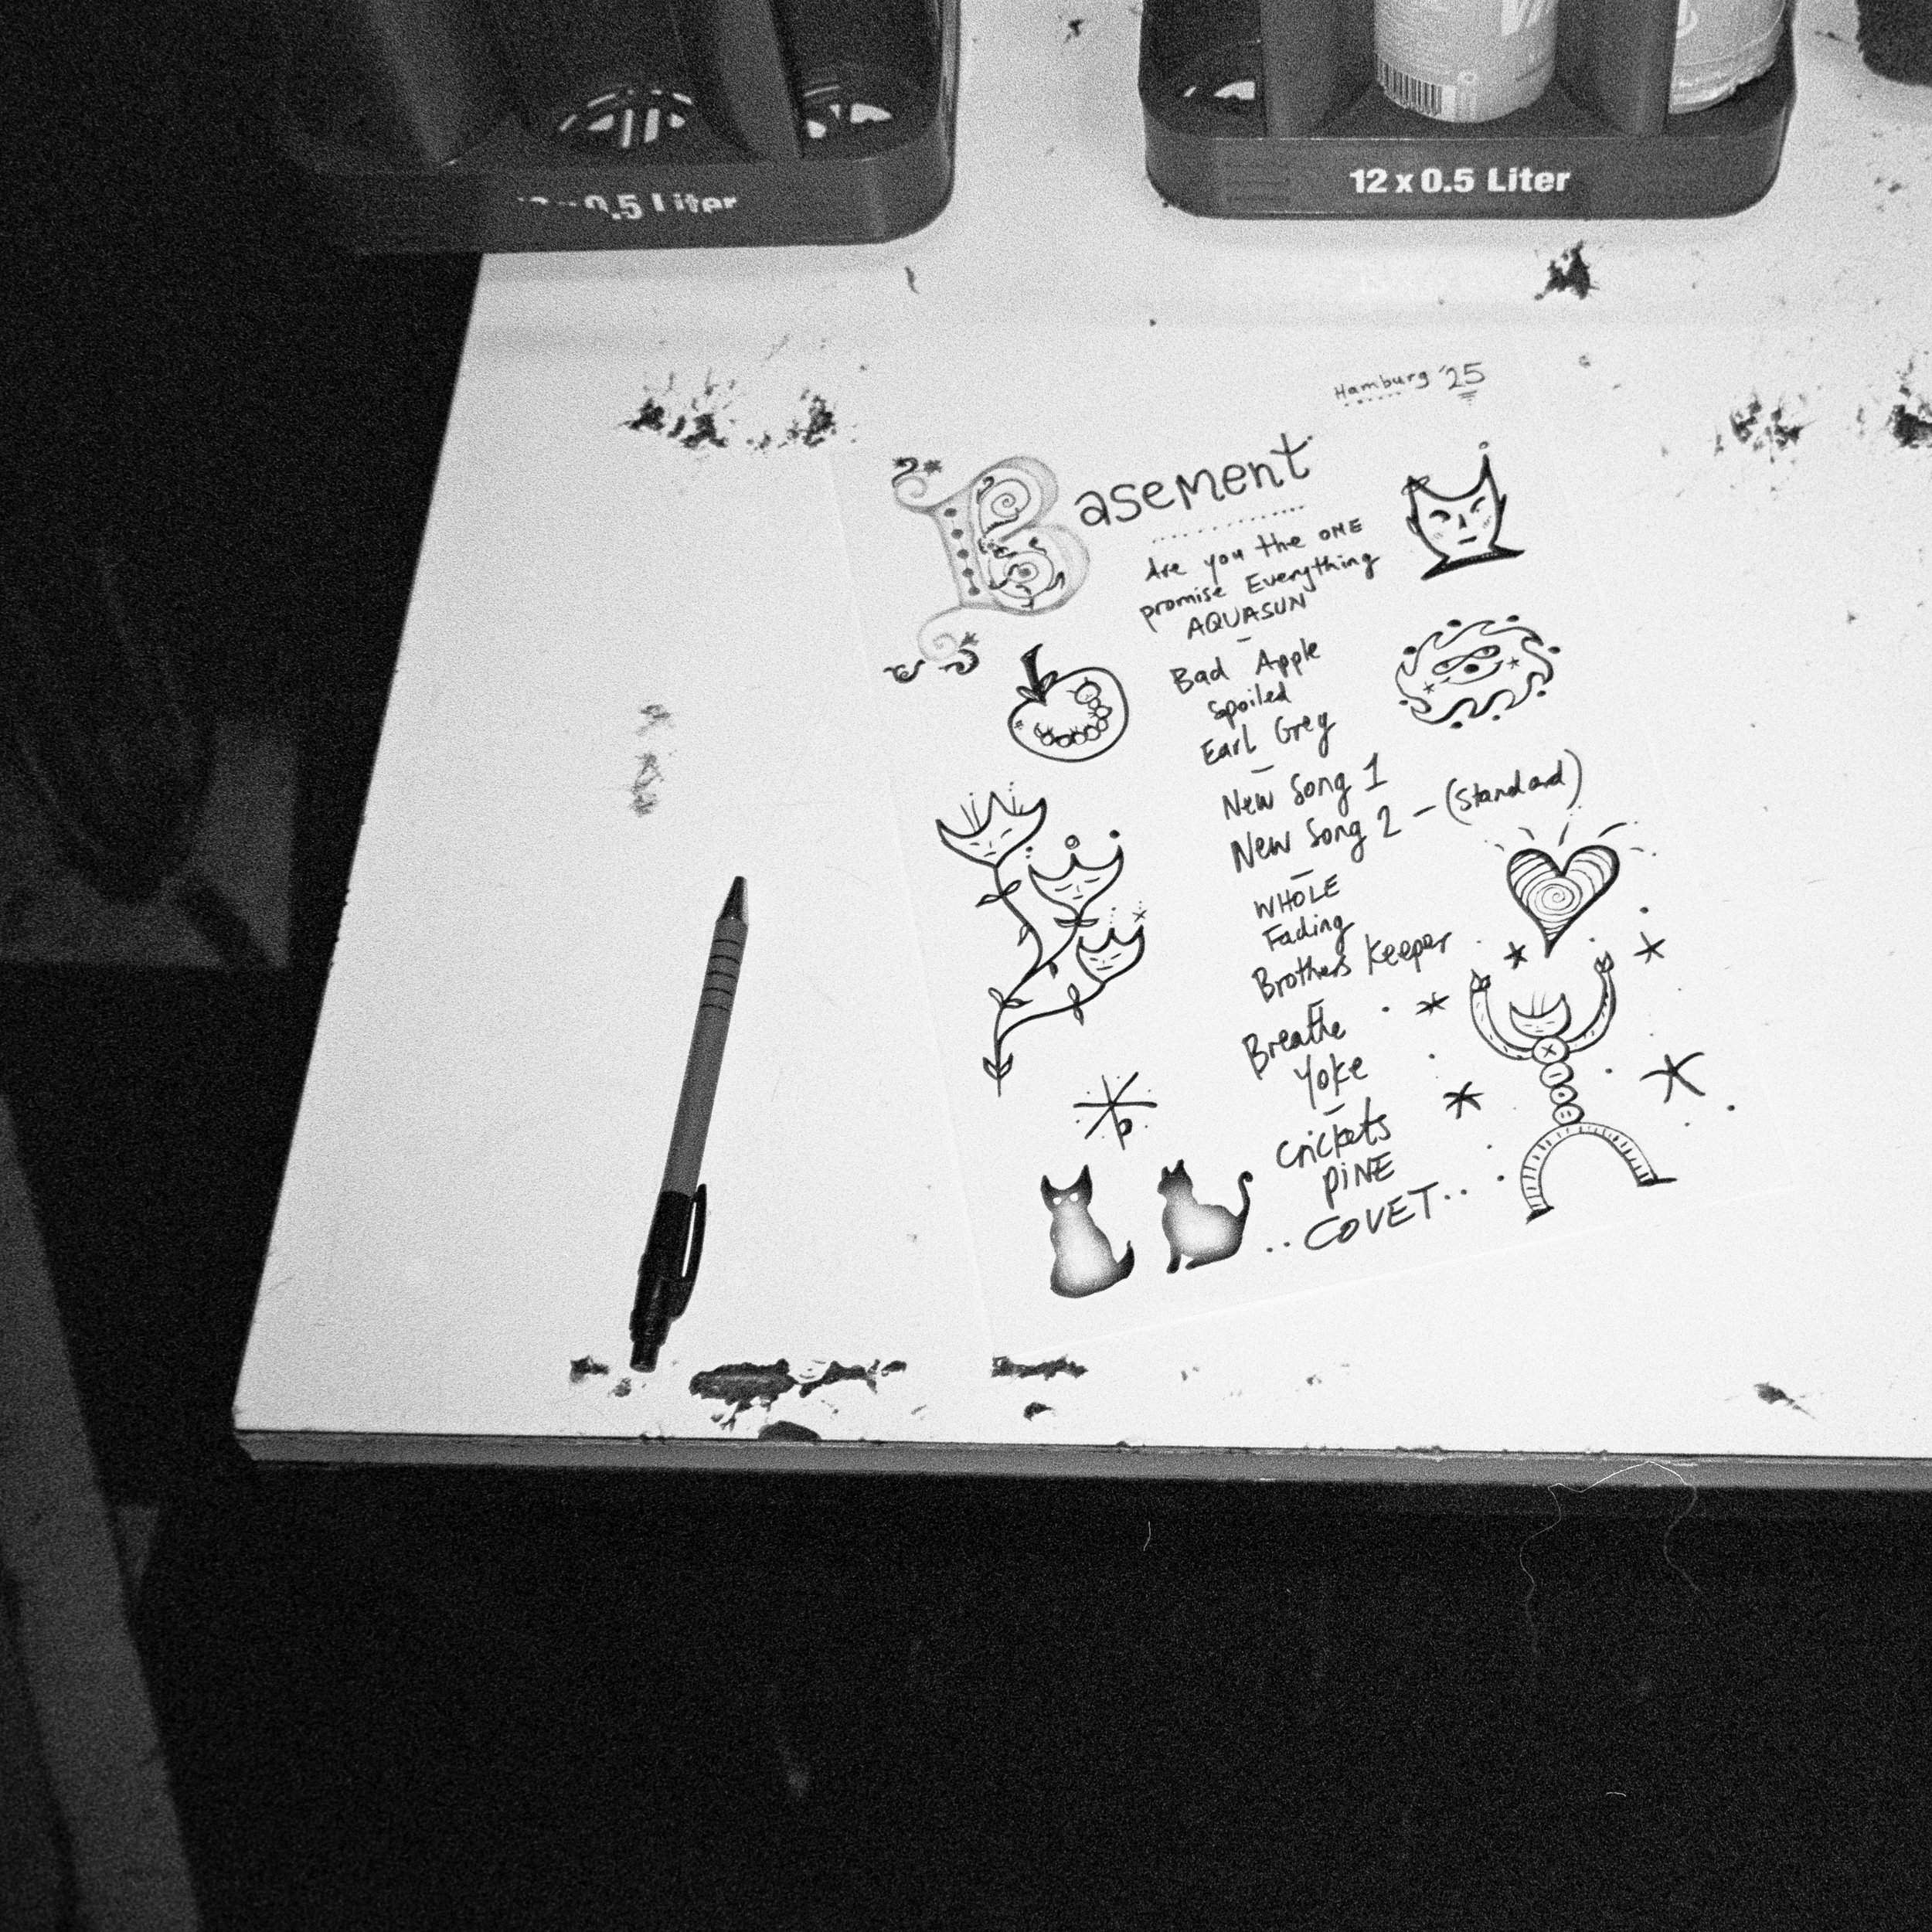 0.5 Liter
12 x 0.5 Liter
Hamburg '25
Basement
Are you the ONE
promise Everything
AQUASUN
-
Bad Apple
Spoiled
Earl Grey
-
New Song 1
New Song 2 - (Standard)
-
WHOLE
Fading
Brothers Keeper
-
Breathe
Yoke
-
Crickets
PiNE
..COVET..